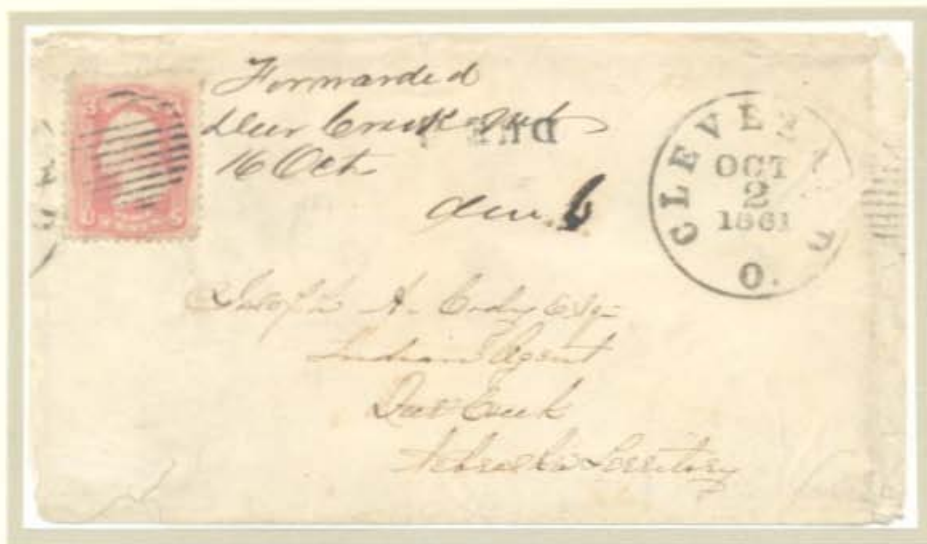 Forwarded
Deer Creek
16 Oct
DUE 6
CLEVELAND
OCT
2
1861
O.
Joseph A. Cody Esq
Indian Agent
Deer Creek
Nebraska Territory